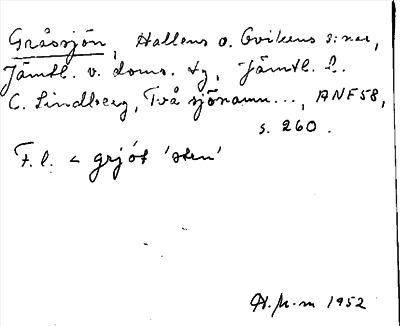 Gråssjön, Hallens o. Ovikens s:nar,
Jämtl. v. doms. tg, Jämtl. l.
C. Lindberg, Två sjönamn..., ANF 58,
s. 260.
F.l. < grjót 'sten'
H. M-m 1952